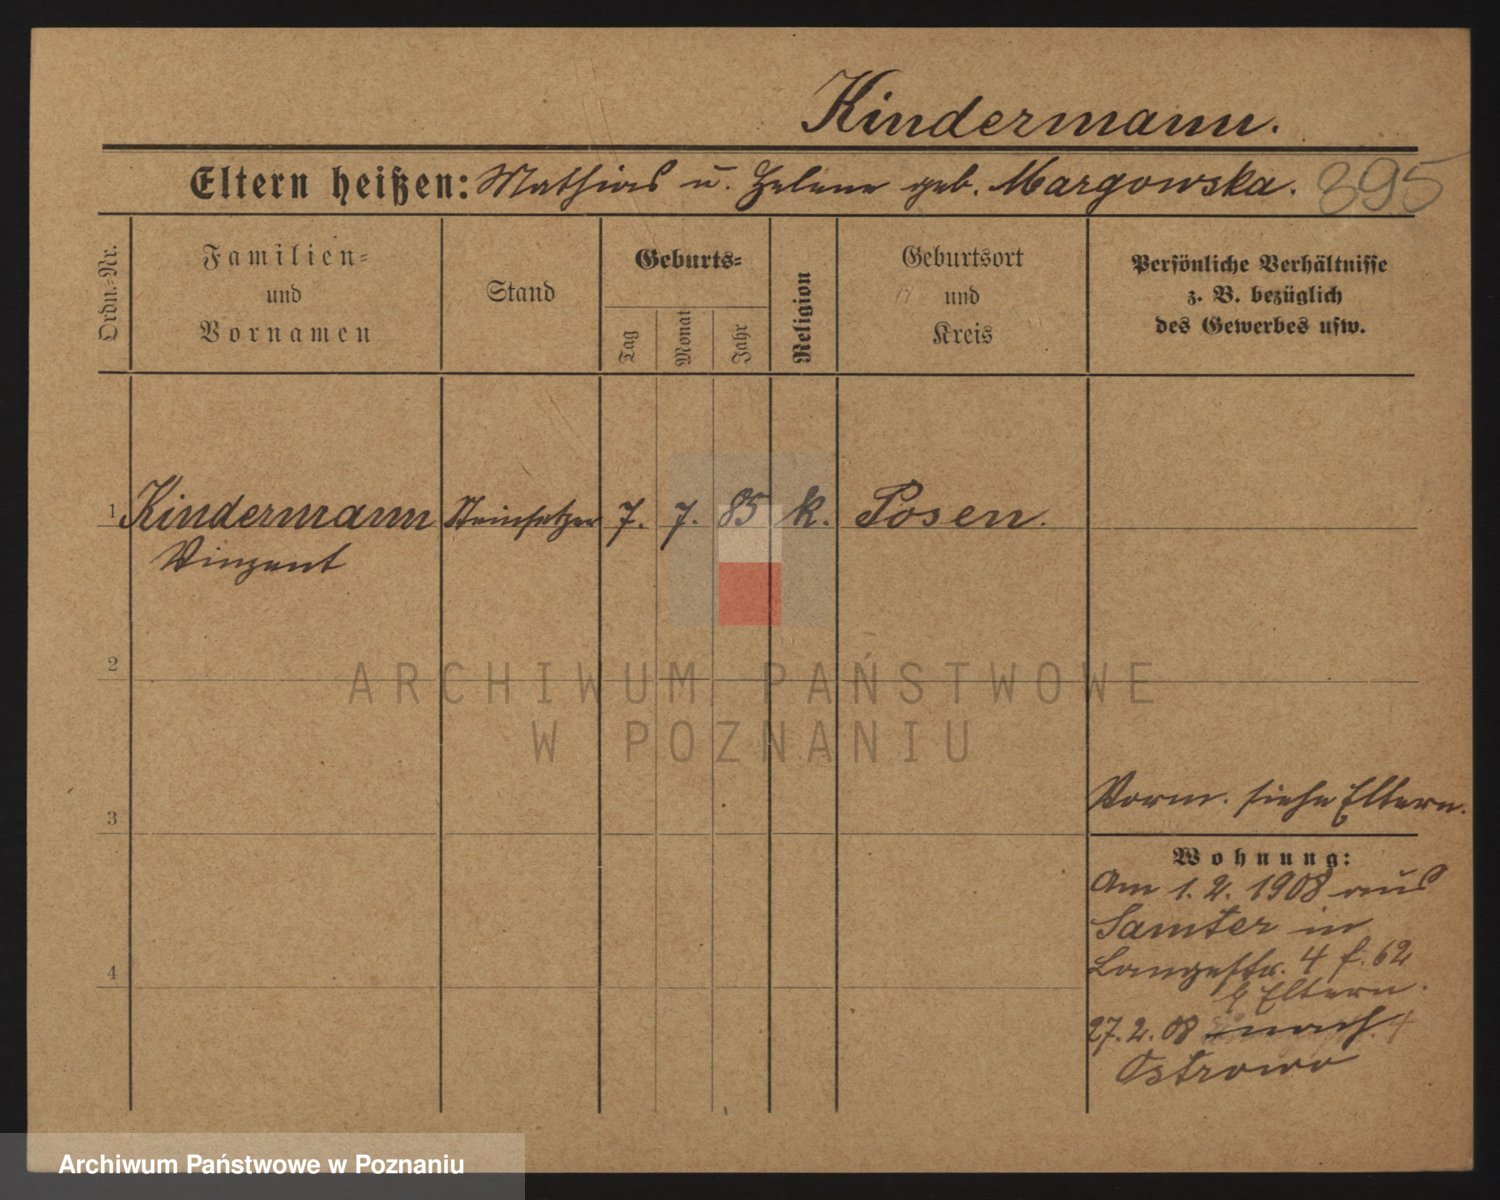 Kindermann.
Eltern heißen: Mathias u. Helene geb. Margowska. 395
Ordn.-Nr.
Familien- und Vornamen
Stand
Geburts-
Tag
Monat
Jahr
Religion
Geburtsort und Kreis
Persönliche Verhältnisse
z. B. bezüglich
des Gewerbes usw.
1 Kindermann Steinsetzer 7. 7. 85 k. Posen.
Vinzent
2
ARCHIWUM PAŃSTWOWE
W POZNANIU
3
Vorm. siehe Eltern.
Wohnung:
Am 1.2.1908 aus
Samter in
Langestr. 4 f. 62
b Eltern.
4
27.2.08 nach
Ostrowo
Archiwum Państwowe w Poznaniu